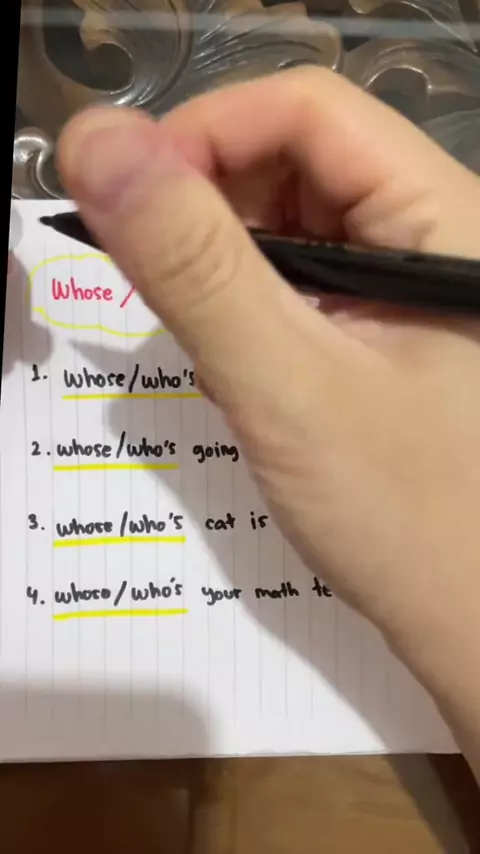 Whose /
1. whose/who's
2. whose/who's going
3. whose/who's cat is
4. whose/who's your math